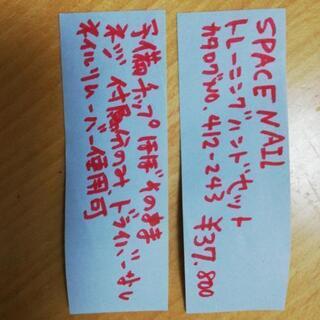 SPACE NAIL
トレーニングハンドセット
カタログNO. 412-243 ¥37.800
予備チップほぼそのまま
ネジ付属分のみ ドライバー無し
ネイルリムーバー使用可